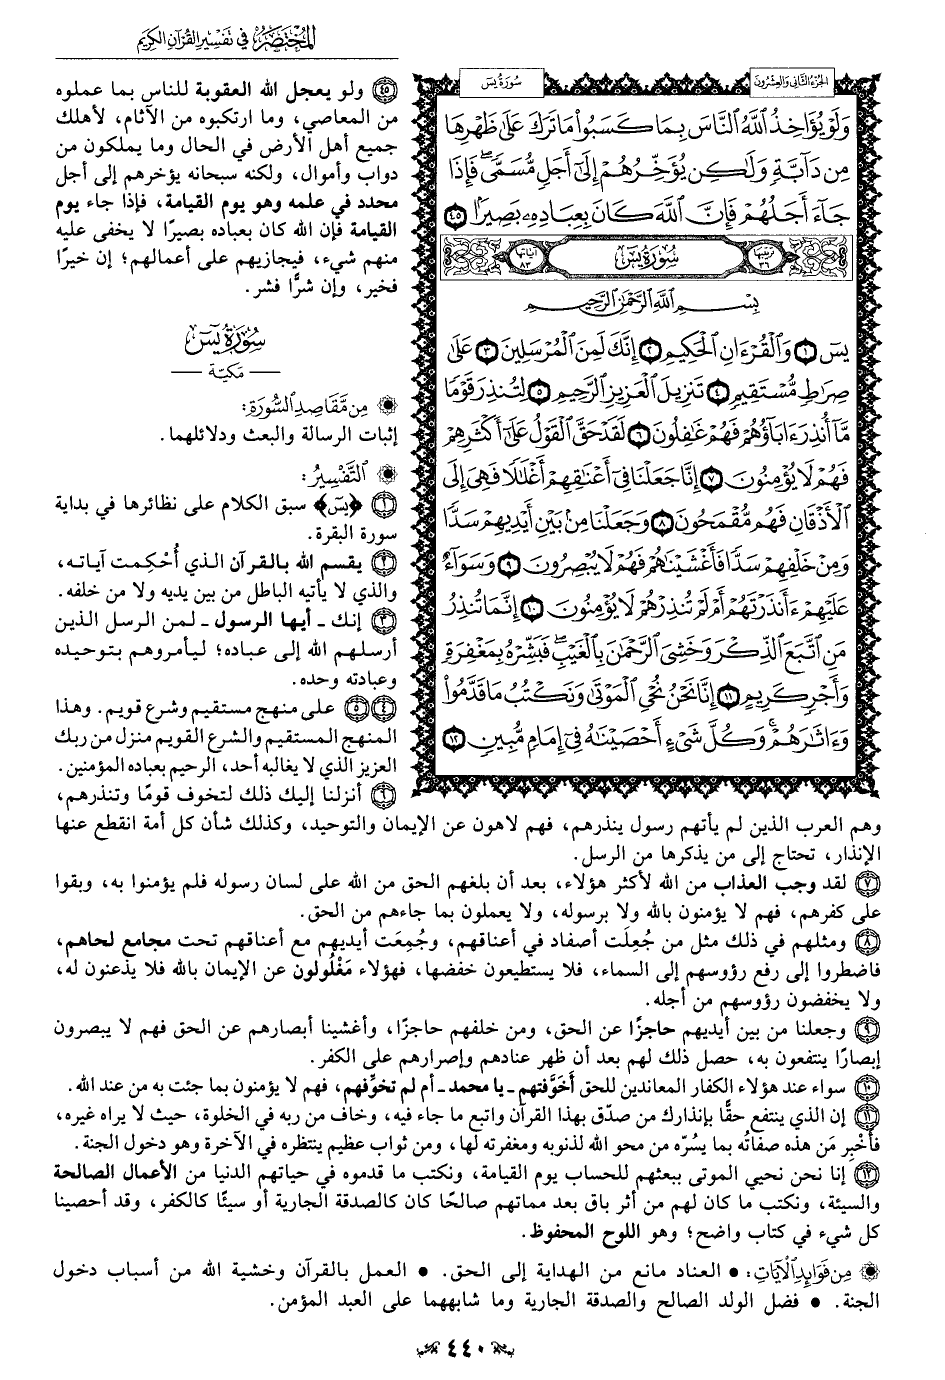 المختصر في تفسير القرآن الكريم
الجزء الثاني والعشرون
سورة يس
وَلَوْ يُؤَاخِذُ ٱللَّهُ ٱلنَّاسَ بِمَا كَسَبُوا۟ مَا تَرَكَ عَلَىٰ ظَهْرِهَا
مِن دَآبَّةٍ وَلَـٰكِن يُؤَخِّرُهُمْ إِلَىٰٓ أَجَلٍ مُّسَمًّى ۖ فَإِذَا
جَآءَ أَجَلُهُمْ فَإِنَّ ٱللَّهَ كَانَ بِعِبَادِهِۦ بَصِيرًۢا ٤٥
ترتيبها ٣٦
سورة يس
آياتها ٨٣
بِسْمِ ٱللَّهِ ٱلرَّحْمَـٰنِ ٱلرَّحِيمِ
يسٓ ١ وَٱلْقُرْءَانِ ٱلْحَكِيمِ ٢ إِنَّكَ لَمِنَ ٱلْمُرْسَلِينَ ٣ عَلَىٰ
صِرَٰطٍ مُّسْتَقِيمٍ ٤ تَنزِيلَ ٱلْعَزِيزِ ٱلرَّحِيمِ ٥ لِتُنذِرَ قَوْمًا
مَّآ أُنذِرَ ءَابَآؤُهُمْ فَهُمْ غَـٰفِلُونَ ٦ لَقَدْ حَقَّ ٱلْقَوْلُ عَلَىٰٓ أَكْثَرِهِمْ
فَهُمْ لَا يُؤْمِنُونَ ٧ إِنَّا جَعَلْنَا فِىٓ أَعْنَـٰقِهِمْ أَغْلَـٰلًا فَهِىَ إِلَى
ٱلْأَذْقَانِ فَهُم مُّقْمَحُونَ ٨ وَجَعَلْنَا مِنۢ بَيْنِ أَيْدِيهِمْ سَدًّا
وَمِنْ خَلْفِهِمْ سَدًّا فَأَغْشَيْنَـٰهُمْ فَهُمْ لَا يُبْصِرُونَ ٩ وَسَوَآءٌ
عَلَيْهِمْ ءَأَنذَرْتَهُمْ أَمْ لَمْ تُنذِرْهُمْ لَا يُؤْمِنُونَ ١٠ إِنَّمَا تُنذِرُ
مَنِ ٱتَّبَعَ ٱلذِّكْرَ وَخَشِىَ ٱلرَّحْمَـٰنَ بِٱلْغَيْبِ ۖ فَبَشِّرْهُ بِمَغْفِرَةٍ
وَأَجْرٍ كَرِيمٍ ١١ إِنَّا نَحْنُ نُحْىِ ٱلْمَوْتَىٰ وَنَكْتُبُ مَا قَدَّمُوا۟
وَءَاثَـٰرَهُمْ ۚ وَكُلَّ شَىْءٍ أَحْصَيْنَـٰهُ فِىٓ إِمَامٍ مُّبِينٍ ١٢
٤٥ ولو يعجل الله العقوبة للناس بما عملوه
من المعاصي، وما ارتكبوه من الآثام، لأهلك
جميع أهل الأرض في الحال وما يملكون من
دواب وأموال، ولكنه سبحانه يؤخرهم إلى أجل
محدد في علمه وهو يوم القيامة، فإذا جاء يوم
القيامة فإن الله كان بعباده بصيرًا لا يخفى عليه
منهم شيء، فيجازيهم على أعمالهم؛ إن خيرًا
فخير، وإن شرًّا فشر.
سورة يس
— مكية —
من مقاصد السورة:
إثبات الرسالة والبعث ودلائلهما.
التفسير:
١ ﴿يسٓ﴾ سبق الكلام على نظائرها في بداية
سورة البقرة.
٢ يقسم الله بالقرآن الذي أُحْكِمت آياته،
والذي لا يأتيه الباطل من بين يديه ولا من خلفه.
٣ إنك - أيها الرسول - لمن الرسل الذين
أرسلهم الله إلى عباده؛ ليأمروهم بتوحيده
وعبادته وحده.
٤ ٥ على منهج مستقيم وشرع قويم. وهذا
المنهج المستقيم والشرع القويم منزل من ربك
العزيز الذي لا يغالبه أحد، الرحيم بعباده المؤمنين.
٦ أنزلنا إليك ذلك لتخوف قومًا وتنذرهم،
وهم العرب الذين لم يأتهم رسول ينذرهم، فهم لاهون عن الإيمان والتوحيد، وكذلك شأن كل أمة انقطع عنها
الإنذار، تحتاج إلى من يذكرها من الرسل.
٧ لقد وجب العذاب من الله لأكثر هؤلاء، بعد أن بلغهم الحق من الله على لسان رسوله فلم يؤمنوا به، وبقوا
على كفرهم، فهم لا يؤمنون بالله ولا برسوله، ولا يعملون بما جاءهم من الحق.
٨ ومثلهم في ذلك مثل من جُعِلَت أصفاد في أعناقهم، وجُمِعَت أيديهم مع أعناقهم تحت مجامع لحاهم،
فاضطروا إلى رفع رؤوسهم إلى السماء، فلا يستطيعون خفضها، فهؤلاء مَغْلُولون عن الإيمان بالله فلا يذعنون له،
ولا يخفضون رؤوسهم من أجله.
٩ وجعلنا من بين أيديهم حاجزًا عن الحق، ومن خلفهم حاجزًا، وأغشينا أبصارهم عن الحق فهم لا يبصرون
إبصارًا ينتفعون به، حصل ذلك لهم بعد أن ظهر عنادهم وإصرارهم على الكفر.
١٠ سواء عند هؤلاء الكفار المعاندين للحق أَخَوَّفتهم - يا محمد - أم لم تخوِّفهم، فهم لا يؤمنون بما جئت به من عند الله.
١١ إن الذي ينتفع حقًّا بإنذارك من صدّق بهذا القرآن واتبع ما جاء فيه، وخاف من ربه في الخلوة، حيث لا يراه غيره،
فأَخْبِر مَن هذه صفاتُه بما يسُرّه من محو الله لذنوبه ومغفرته لها، ومن ثواب عظيم ينتظره في الآخرة وهو دخول الجنة.
١٢ إنا نحن نحيي الموتى ببعثهم للحساب يوم القيامة، ونكتب ما قدموه في حياتهم الدنيا من الأعمال الصالحة
والسيئة، ونكتب ما كان لهم من أثر باق بعد مماتهم صالحًا كان كالصدقة الجارية أو سيئًا كالكفر، وقد أحصينا
كل شيء في كتاب واضح؛ وهو اللوح المحفوظ.
من فوائد الآيات: • العناد مانع من الهداية إلى الحق. • العمل بالقرآن وخشية الله من أسباب دخول
الجنة. • فضل الولد الصالح والصدقة الجارية وما شابههما على العبد المؤمن.
٤٤٠